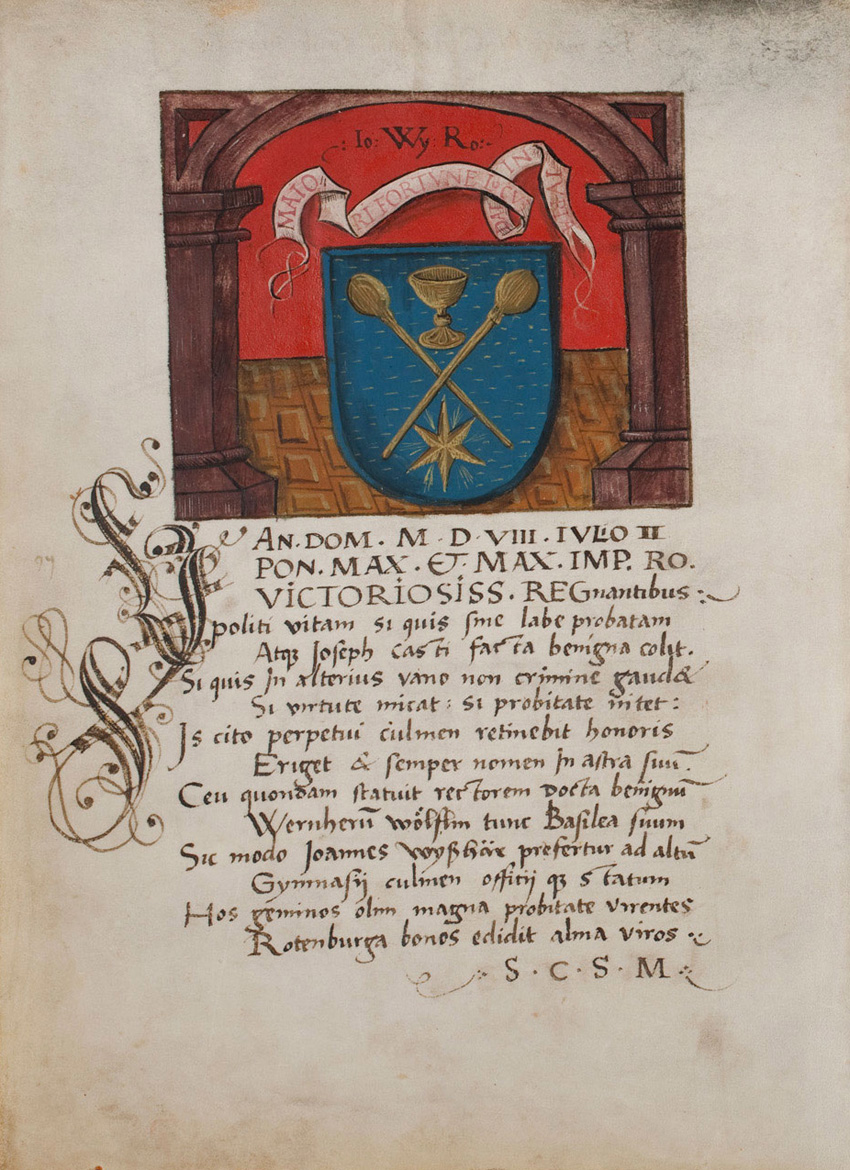 .: Io: Wy: Ro:-
MAIORI FORTVNE LOCVS
AN. DOM. M. D. VIII. IVLIO II
PON. MAX. ET. MAX. IMP. RO.
VICTORIOSISS. REGnantibus :~
politi vitam si quis sine labe probatam
Atq̃ Joseph casti facta benigna colit.
Si quis In alterius vano non crimine gaud&
Si virtute micat: si probitate nitet:
Is cito perpetui culmen retinebit honoris
Eriget & semper nomen In astra suū.
Ceu quondam statuit rectorem docta benignū
Wernherū wölfflin tunc Basilea suum
Sic modo Joannes wyßhär prefertur ad altū
Gymnasij culmen offitij q̃ statum
Hos geminos olim magna probitate virentes
Rotenburga bonos edidit alma viros :~
S. C. S. M